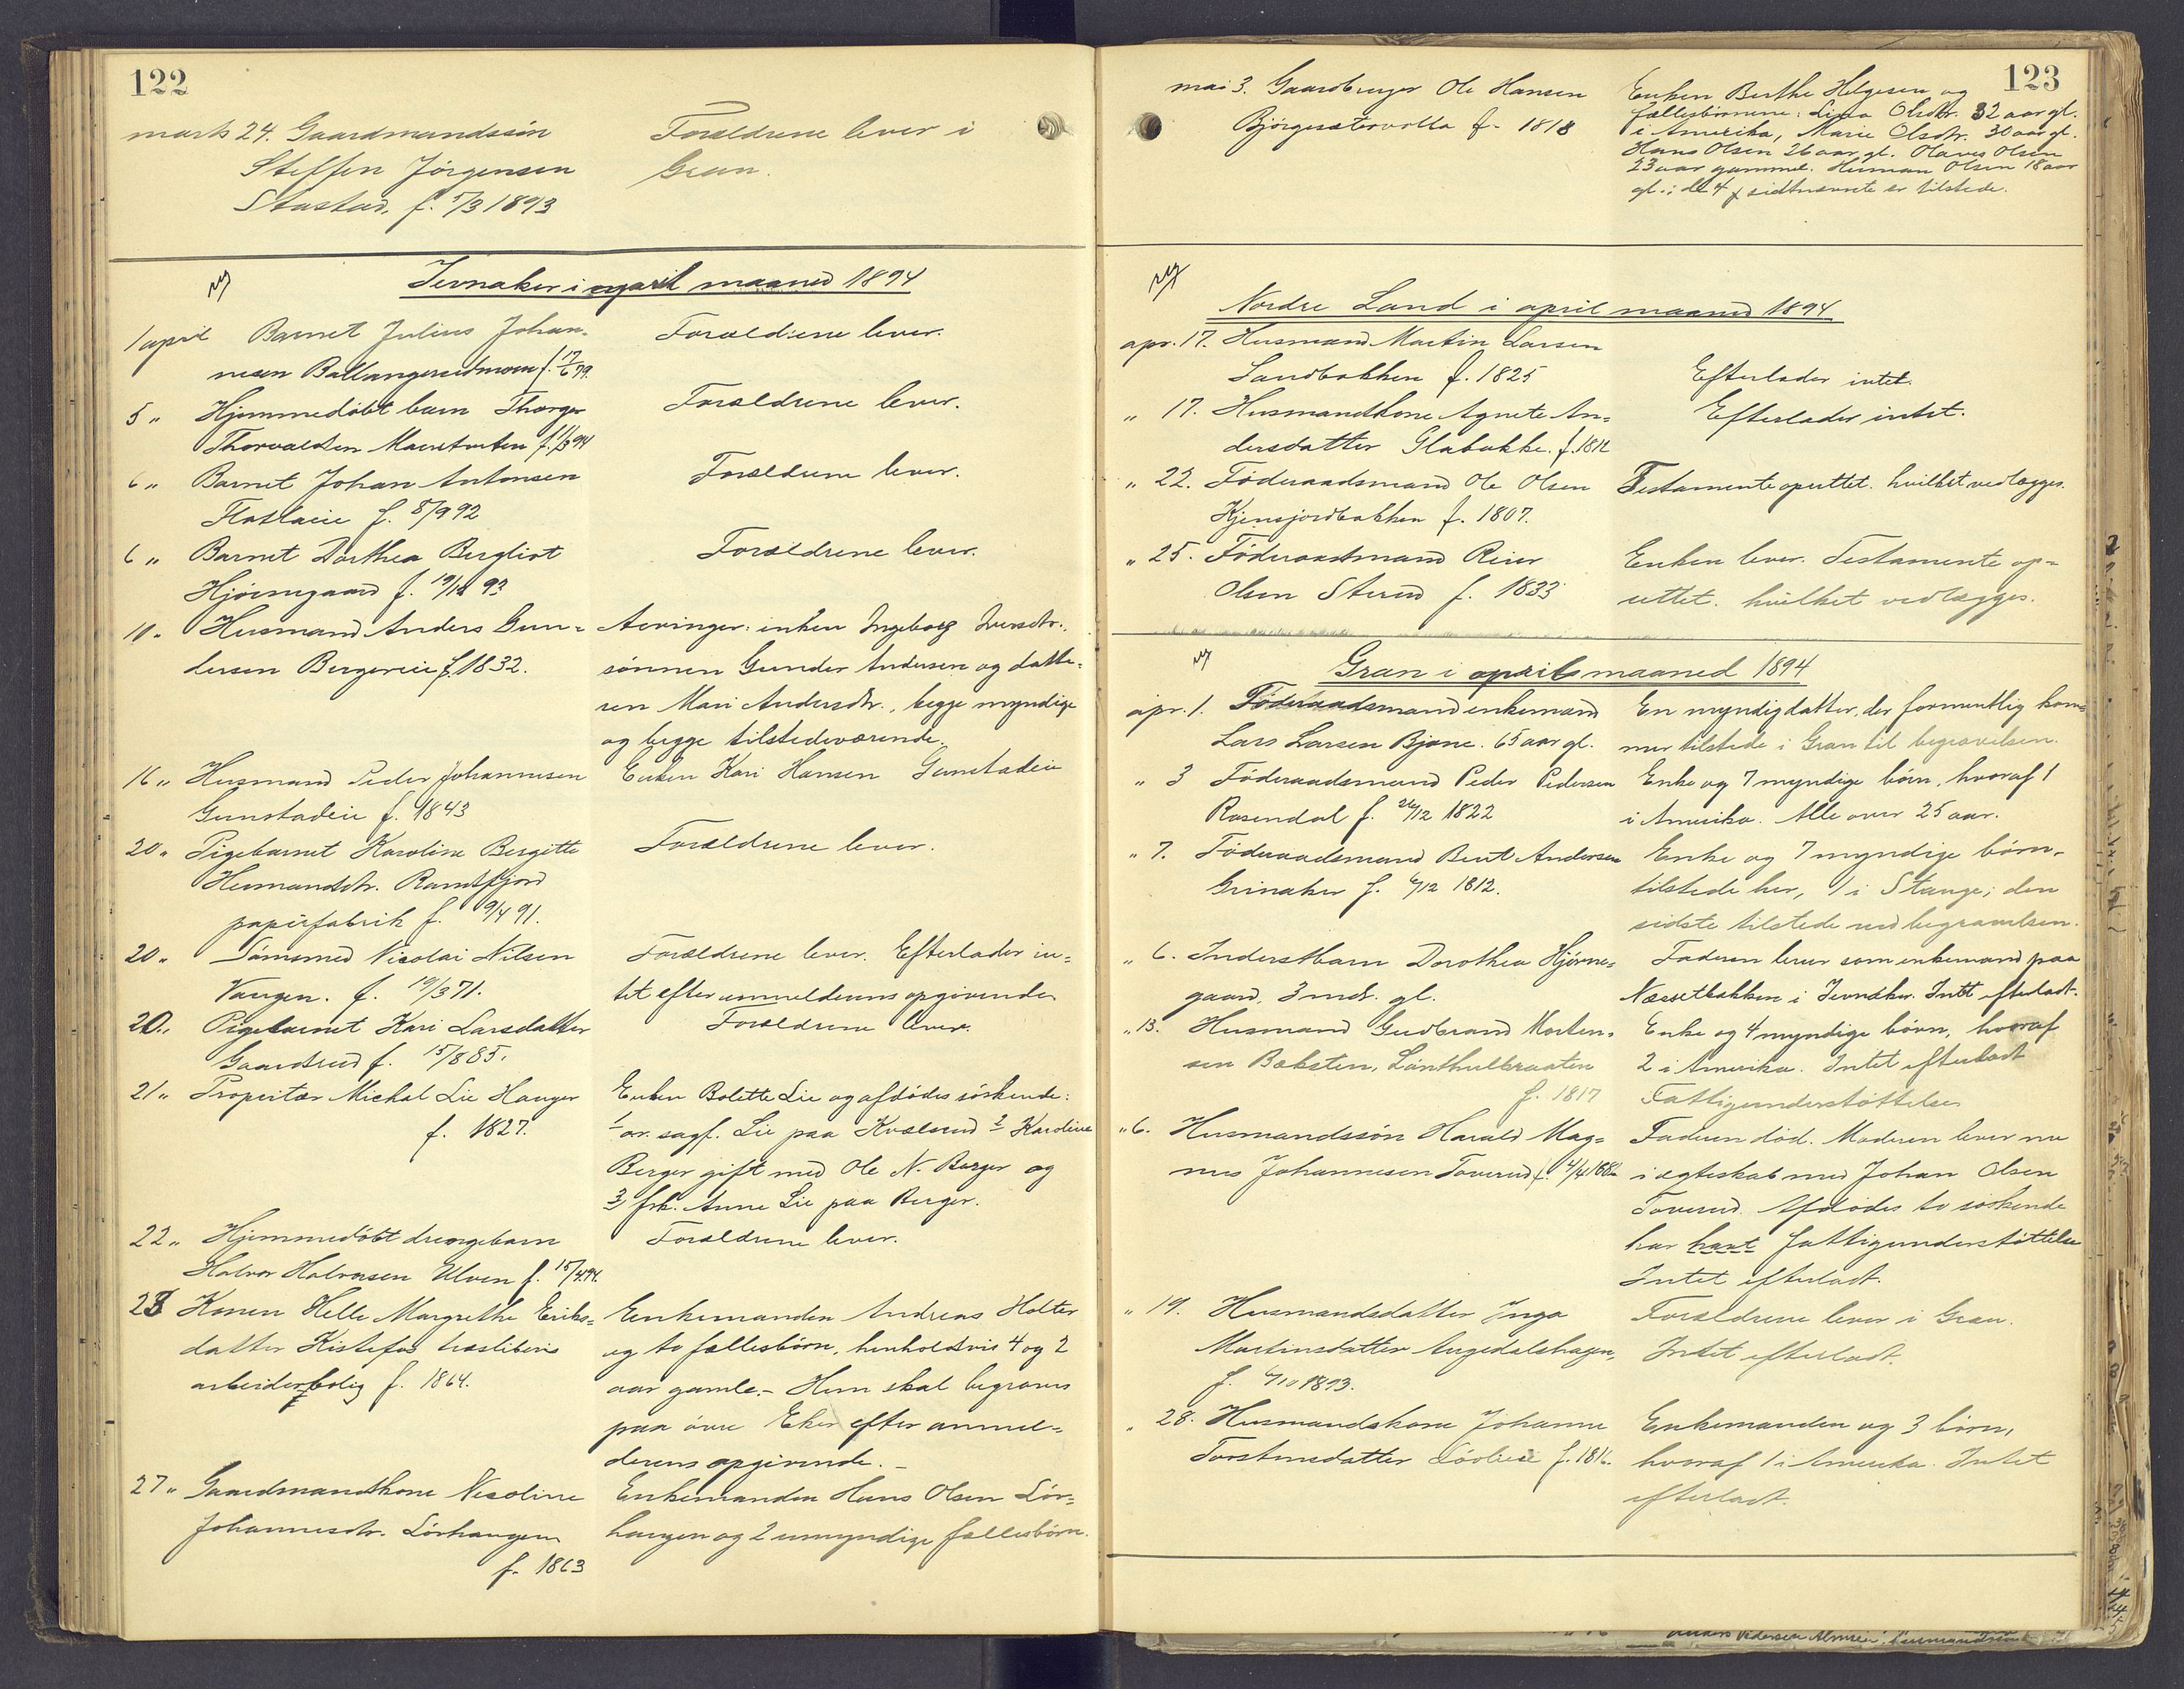 122
marts 24. Gaardmandssön Forældrene lever i
Steffen Jörgensen Gran.
Stastad, f. 5/3 1893
Jevnaker i april maaned 1894
1 april Barnet Julius Johan- Forældrene lever.
nesen Ballangerudmoen f. 17/6 79.
5 " Hjemmedöbt barn Thorger Forældrene lever.
Thorvaldsen f. 1/3 94
6 " Barnet Johan Antonsen Forældrene lever.
Flatlaeie f. 8/9 92
6 " Barnet Dorthea Bergliot Forældrene lever.
Hjörnegaard f. 19/12 93
10 " Husmand Anders Gun- Arvinger: enken Ingeborg Iversdtr.,
dersen Bergereie f. 1832. sönnen Gunder Andersen og datte-
ren Mari Andersdtr., begge myndige
og begge tilstedeværende.
16 " Husmand Peder Johannesen Enken Kari Hansen Gunstadeie
Gunstadeie f. 1843
20 " Pigebarnet Karoline Bergitte Forældrene lever.
Hermandsdtr. Randsfjord
papirfabrik f. 9/4 91.
20 " Sömsmed Nicolai Nilsen Forældrene lever. Efterlader in-
Vangen. f. 19/3 71. tet efter anmelderens opgivende
20 " Pigebarnet Kari Larsdatter Forældrene lever.
Gaardsrud f. 15/8 85.
21 " Propritær Michal Lie Hauger Enken Bolette Lie og afdödes söskende:
f. 1827. 1/ or. sagf. Lie paa Kvælsrud 2/ Karoline
Berger gift med Ole N. Berger og
3/ frk. Anne Lie paa Berger.
22 " Hjemmedöbt drengebarn Forældrene lever.
Halvor Halvorsen Ulven f. 15/4 94.
23 Konen Helle Margrethe Eriks- Enkemanden Andreas Holter
datter Kistefos træsliberi og to fællesbörn, henholdsvis 4 og 2
arbeiderbolig f. 1864. aar gamle. - Hun skal begraves
paa övre Eker efter anmel-
derens opgivende. -
27 " Gaardmandskone Nicoline Enkemanden Hans Olsen Lör-
Johannesdtr. Lörhaugen haugen og 2 umyndige fællesbörn.
f. 1863
123
mai 3. Gaardbruger Ole Hansen Enken Berthe Helgesen og
Björgesætervolla f. 1818 fællesbörnene: Lina Olsdtr. 32 aar gl.
i Amerika, Marie Olsdtr. 30 aar gl.
Hans Olsen 26 aar gl. Olaves Olsen
23 aar gammel. Herman Olsen 18 aar
gl.; de 4 sidtnævnte er tilstede.
Nordre Land i april maaned 1894
apr. 17. Husmand Martin Larsen
Sandbakken f. 1825 Efterlader intet.
" 17. Husmandskone Agnete An- Efterlader intet.
dersdatter Glabakke. f. 1812
" 22. Föderaadsmand Ole Olsen Testamente oprettet. hvilket vedlægges.
Kjensjordbakken f. 1807.
" 25. Föderaadsmand Reier Enken lever. Testamente op-
Olsen Sterud f. 1833 rettet. hvilket vedlægges.
Gran i april maaned 1894
apr. 1. Föderaadsmand enkemand En myndig datter, der formentlig kom-
Lars Larsen Bjone. 65 aar gl. mer tilstede i Gran til begravelsen.
" 3 Föderaadsmand Peder Pedersen Enke og 7 myndige börn, hvoraf 1
Rosendal f. 26/12 1822 i Amerika. Alle over 25 aar.
" 7. Föderaadsmand Bent Andersen Enke og 7 myndige börn,
Grinaker f. 6/12 1812. tilstede her, 1 i Stange; den
sidste tilstede ved begravelsen.
" 6. Inderstbarn Dorothea Hjörne- Faderen lever som enkemand paa
gaard, 3 mdr. gl. Næssetbakken i Jevnaker. Intet efterladt.
" 13. Husmand Gudbrand Morten- Enke og 4 myndige börn, hvoraf
sen Bæksten, Lönthulbraaten 2 i Amerika. Intet efterladt
f. 1817 Fattigunderstöttelse
" 6. Husmandssön Harald Mag- Faderen död. Moderen lever nu
nus Johannesen Toverud f. 4/4 188 i ægteskab med Johan Olsen
Toverud. Afdödes to söskende
har havt fattigunderstöttelse
Intet efterladt.
" 19. Husmandsdatter Inga Forældrene lever i Gran.
Martinsdatter Augedalshagen, Intet efterladt.
f. 6/10 1893.
" 28. Husmandskone Johanne Enkemanden og 3 börn,
Torstensdatter f. 1816. hvoraf 1 i Amerika. Intet
efterladt.